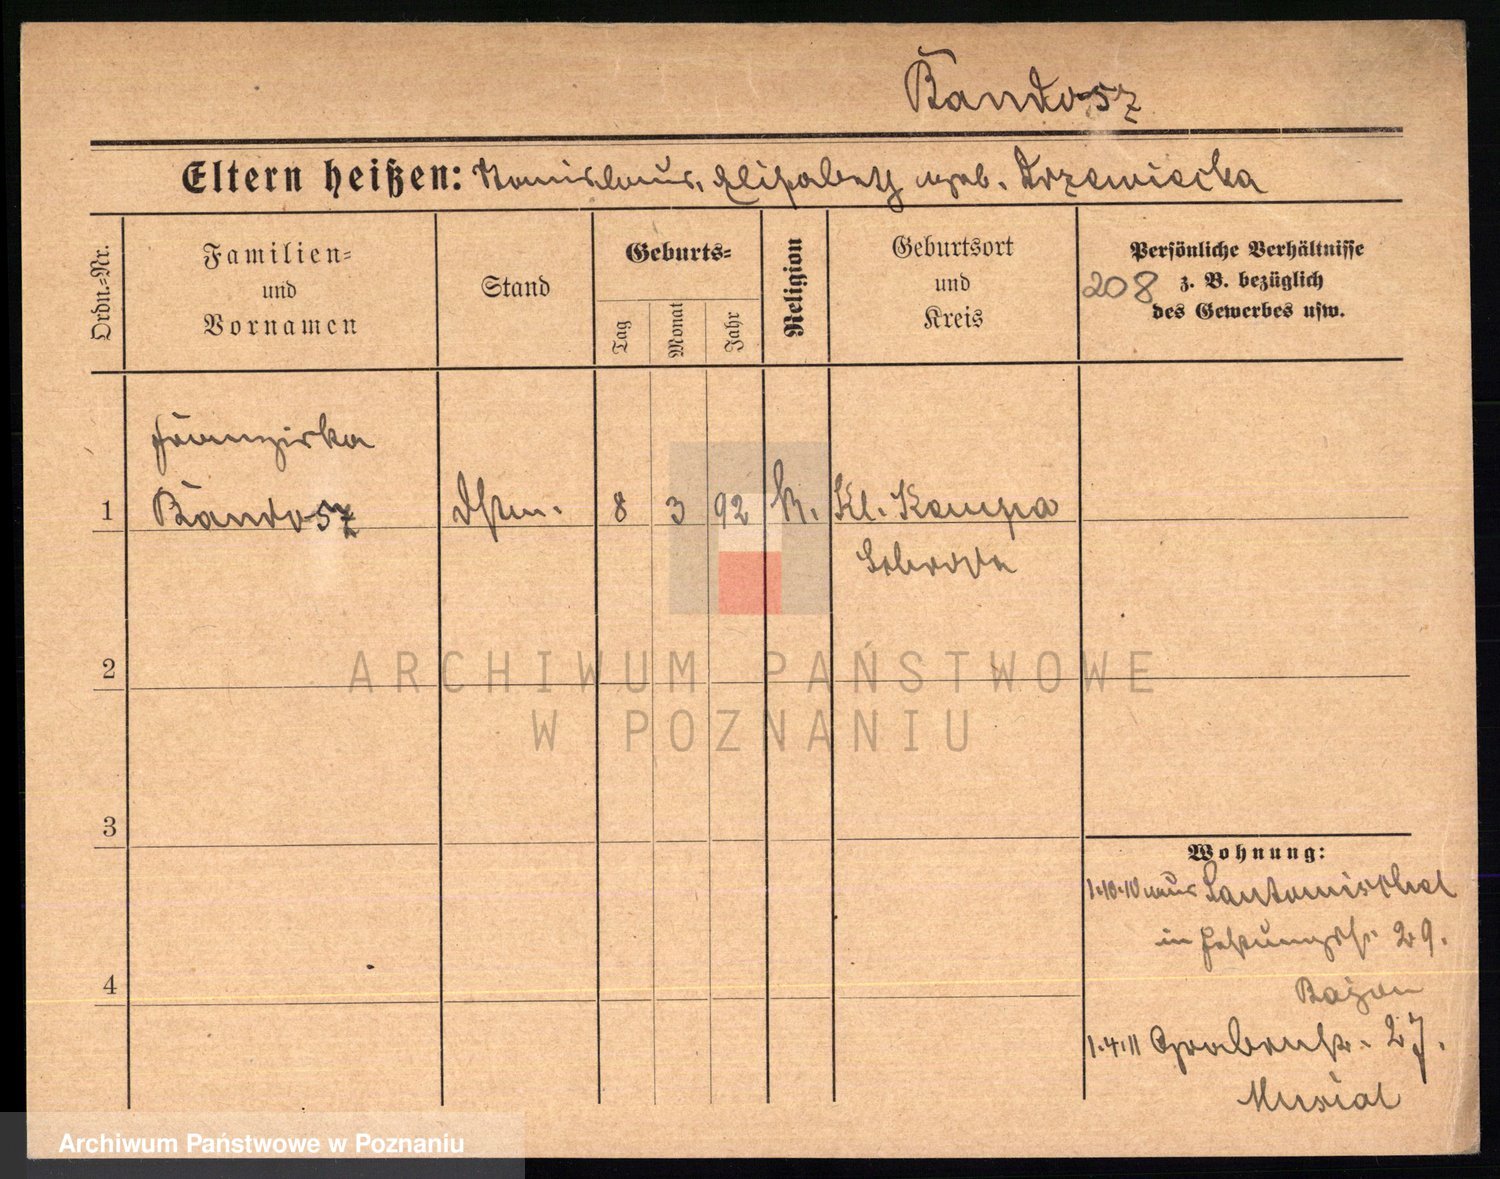 Bandosz
Eltern heißen: Stanislaus, Elisabeth geb. Drzewiecka
Ordn.-Nr.
Familien-
und
Vornamen
Stand
Geburts-
Tag
Monat
Jahr
Religion
Geburtsort
und
Kreis
Persönliche Verhältnisse
208 z. B. bezüglich
des Gewerbes usw.
Franziska
1 Bandosz Dstm. 8 3 92 K. Kl. Kempa
Schroda
2
ARCHIWUM PAŃSTWOWE
W POZNANIU
3
Wohnung:
1.10.10 aus Santomischel
in Festungsstr. 29.
4
1.4.11 Grabenstr. 27.
Musial
Archiwum Państwowe w Poznaniu